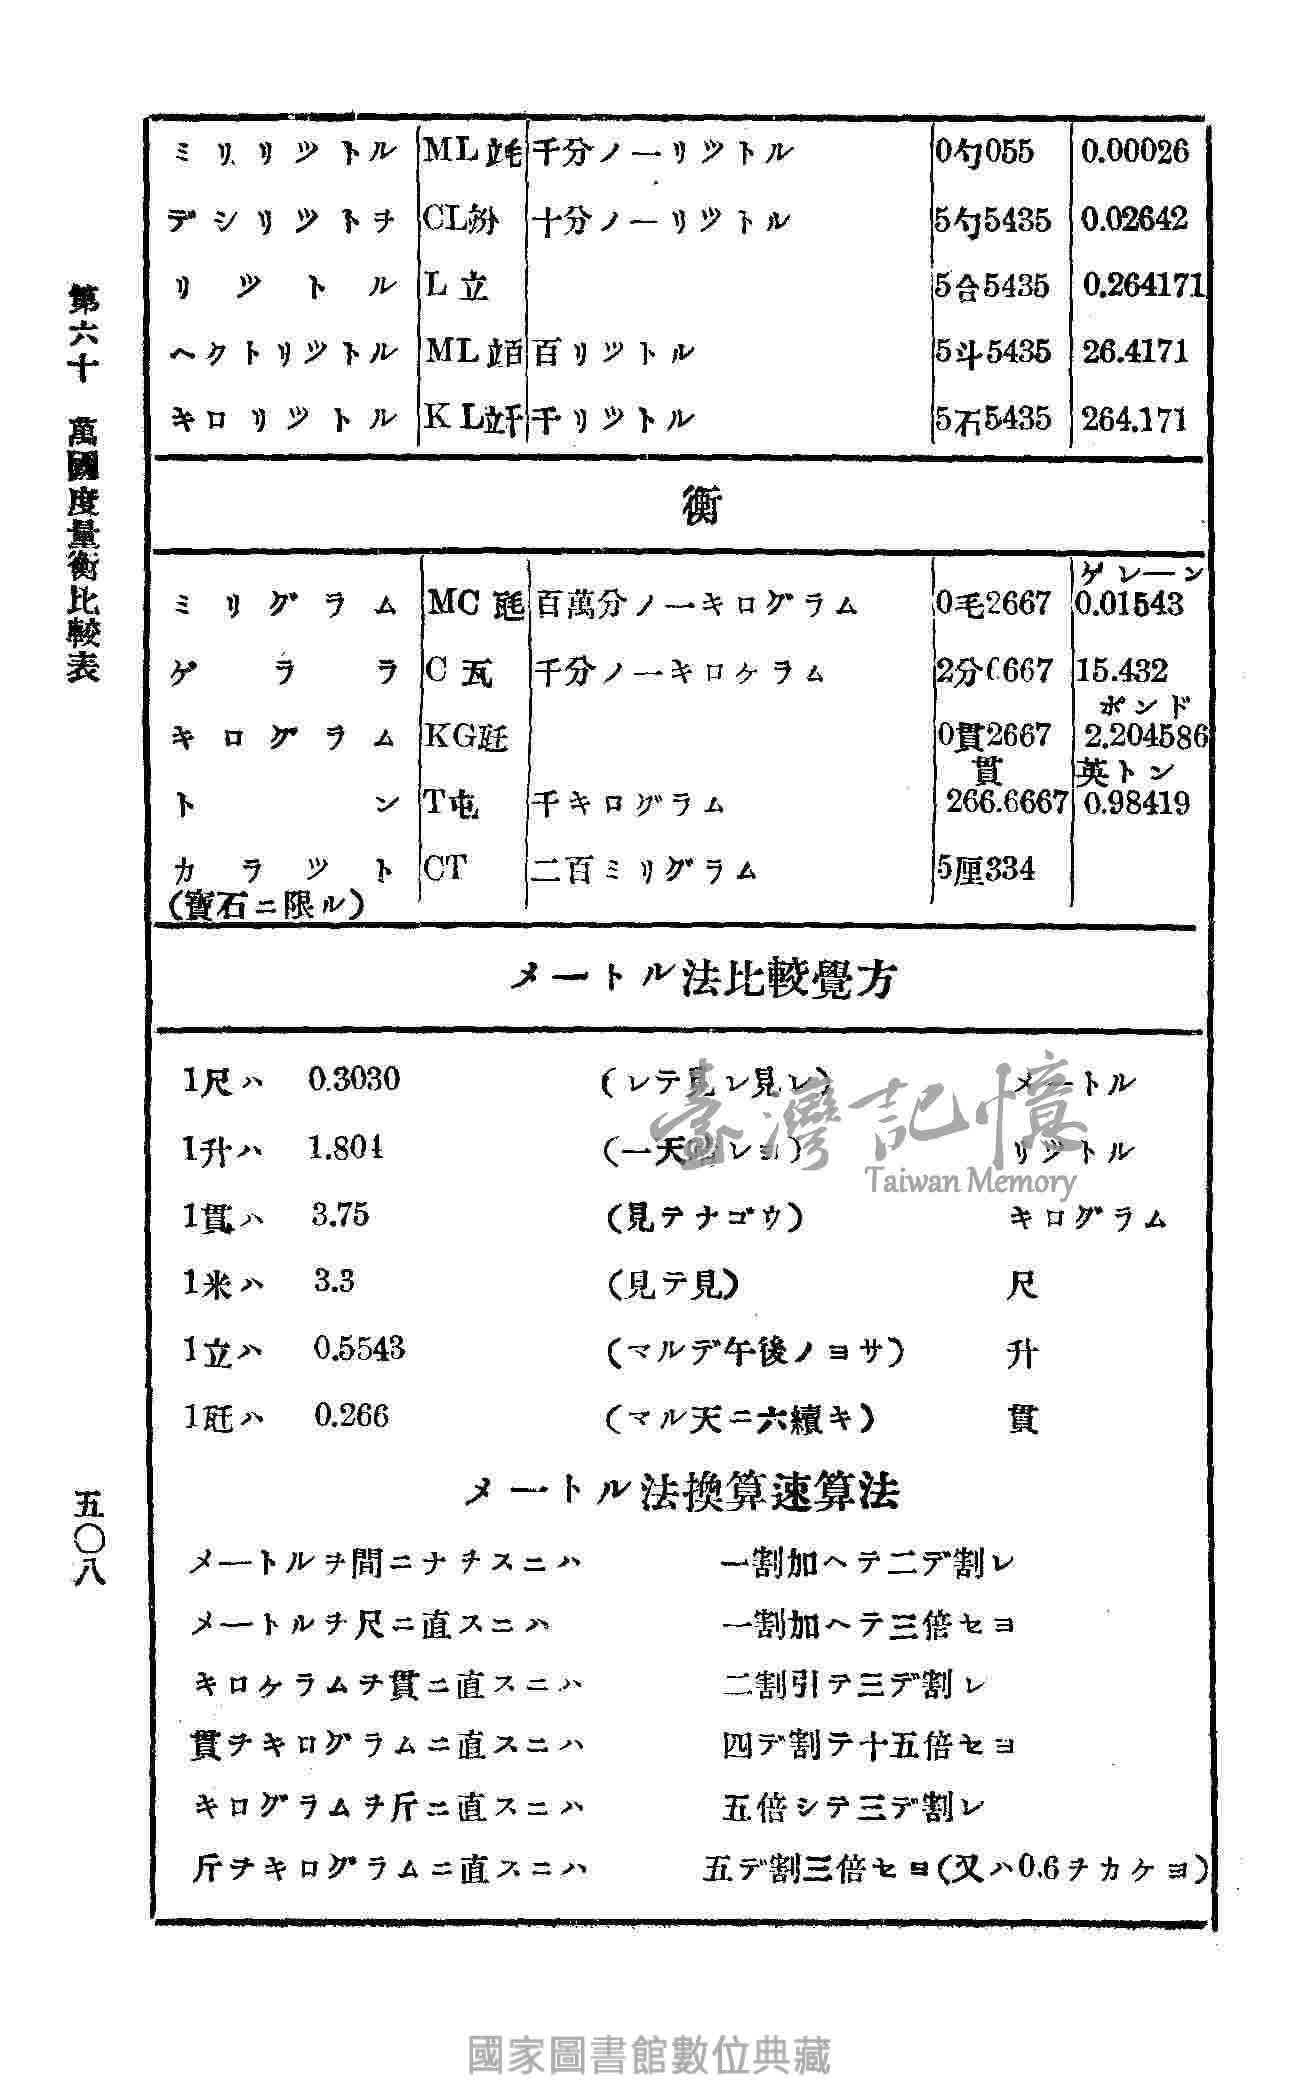 第六十 萬國度量衡比較表
ミリリツトル ML 竓 千分ノ一リツトル 0勺055 0.00026
デシリツトヲ CL 竕 十分ノ一リツトル 5勺5435 0.02642
リツトル L 立 5合5435 0.264171
ヘクトリツトル ML 竡 百リツトル 5斗5435 26.4171
キロリツトル KL 竏 千リツトル 5石5435 264.171
衡
ゲレーン
ミリグラム MC 瓱 百萬分ノ一キログラム 0毛2667 0.01543
ゲララ C 瓦 千分ノ一キロケラム 2分6667 15.432
ポンド
キログラム KG 瓩 0貫2667 2.204586
貫 英トン
トン T 屯 千キログラム 266.6667 0.98419
カラツト CT 二百ミリグラム 5厘334
(寶石ニ限ル)
メートル法比較覺方
1尺ハ 0.3030 (レテ見レ見レ) メートル
1升ハ 1.804 (一天 レヨ) リツトル
1貫ハ 3.75 (見テナゴウ) キログラム
1米ハ 3.3 (見テ見) 尺
1立ハ 0.5543 (マルデ午後ノヨサ) 升
1瓩ハ 0.266 (マル天ニ六續キ) 貫
メートル法換算速算法
メートルヲ間ニナヲスニハ 一割加ヘテ二デ割レ
メートルヲ尺ニ直スニハ 一割加ヘテ三倍セヨ
キロケラムヲ貫ニ直スニハ 二割引テ三デ割レ
貫ヲキログラムニ直スニハ 四デ割テ十五倍セヨ
キログラムヲ斤ニ直スニハ 五倍シテ三デ割レ
斤ヲキログラムニ直スニハ 五デ割三倍セヨ(又ハ0.6ヲカケヨ)
五〇八
臺灣記憶
Taiwan Memory
國家圖書館數位典藏